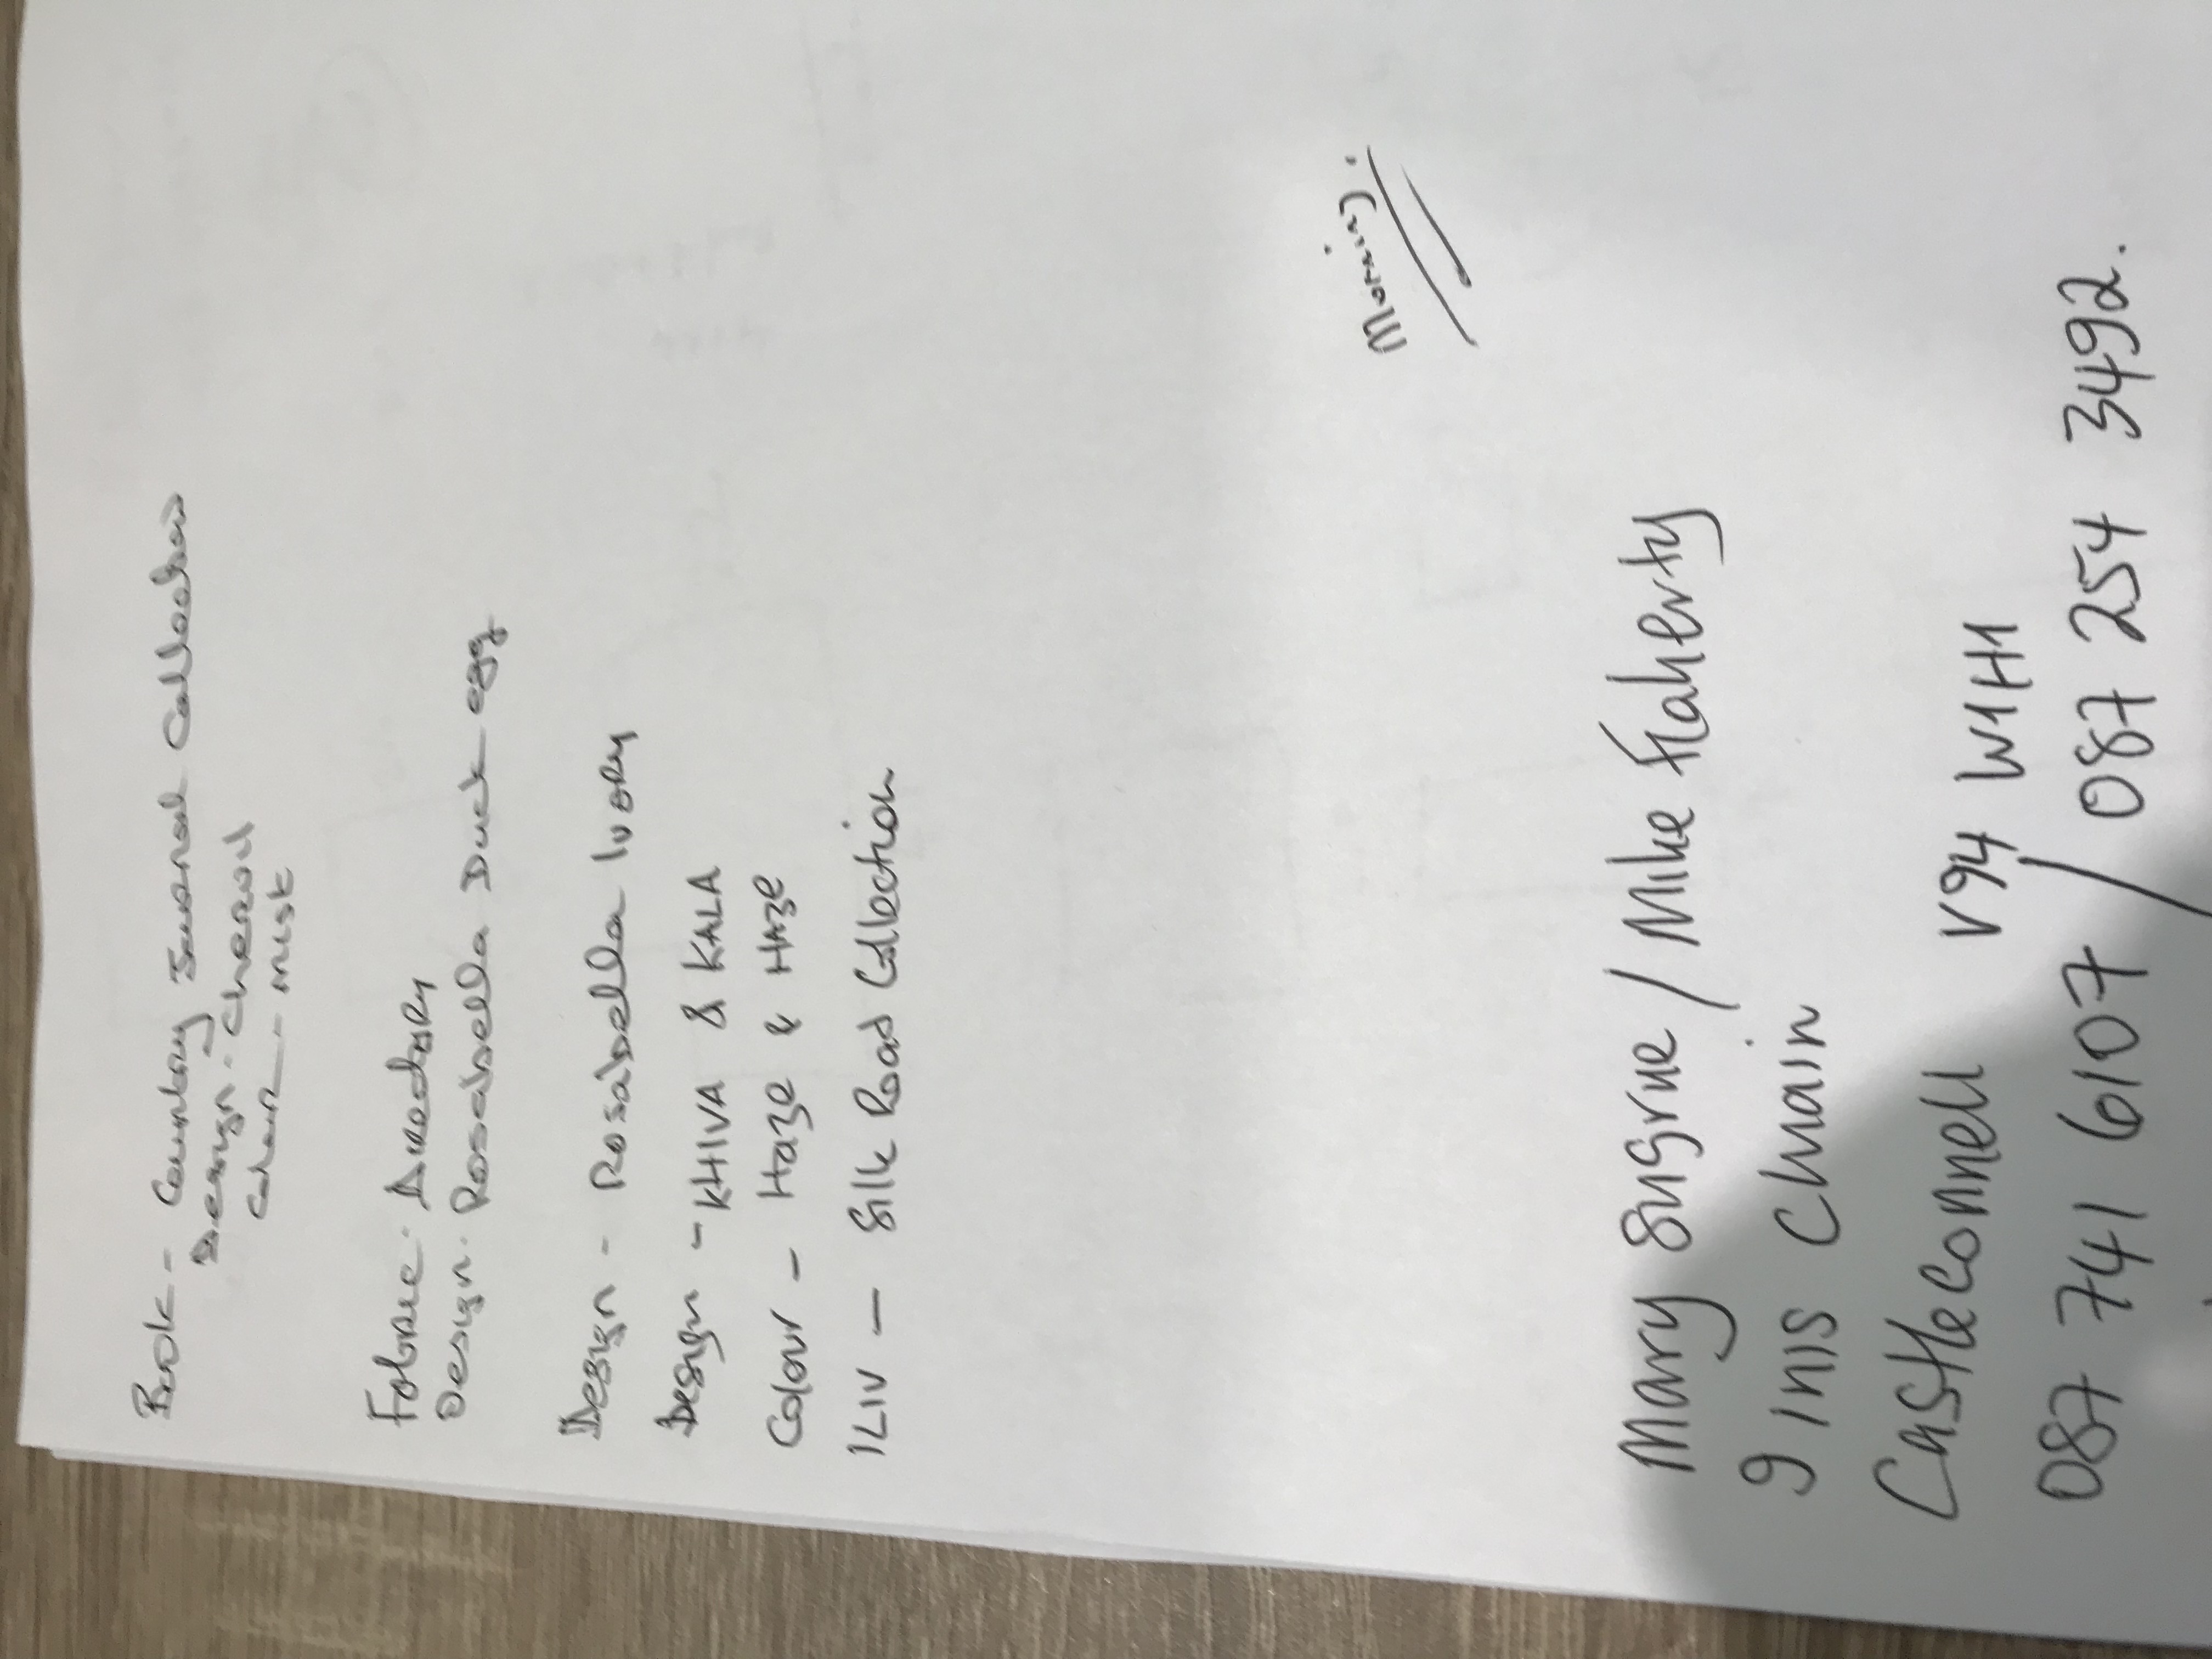 Book - Country Journal Collection
Design - Cherood
Colour - mist
Fabric: Directory
Design: Rosabella Duck egg
Design - Rosabella Ivory
Design - KHIVA & KALA
Colour - Haze & Haze
ILIV - Silk Road Collection
Morning.
Mary / Mike Flaherty
9 Inis Cluain
Castleconnell V94 W1H1
087 741 6107 / 087 254 3492.